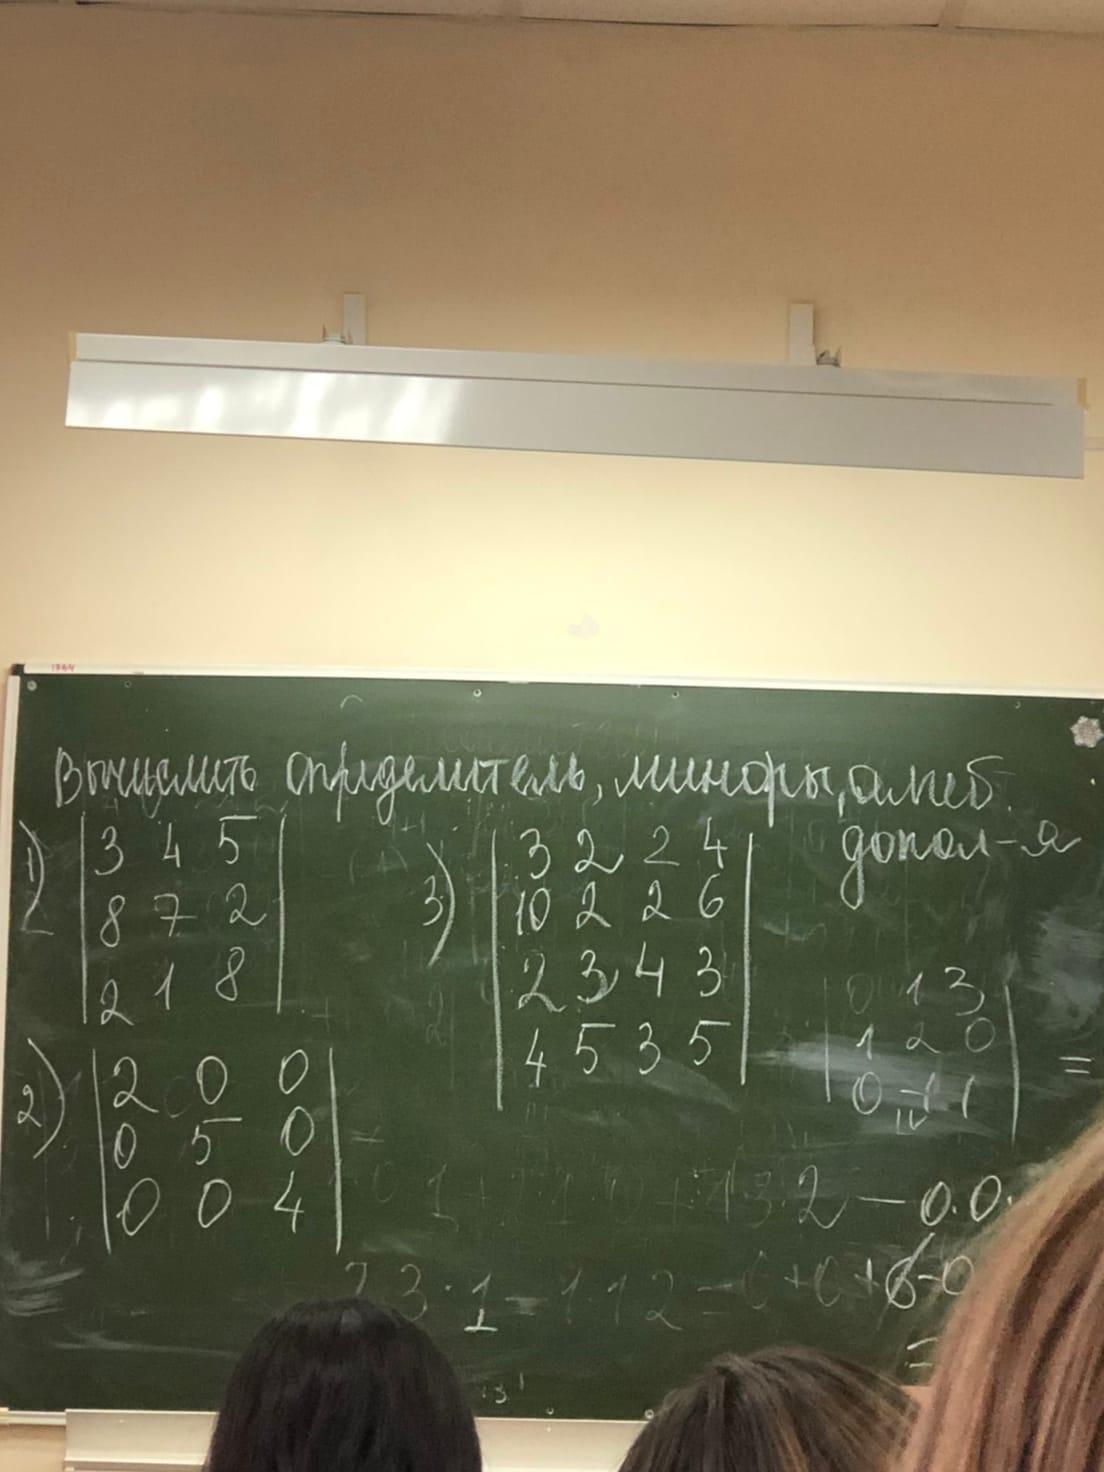 Вычислить определитель, миноры, алгеб.
допол-я
1) | 3 4 5 |
| 8 7 2 |
| 2 1 8 |
2) | 2 0 0 |
| 0 5 0 |
| 0 0 4 |
3) | 3 2 2 4 |
| 10 2 2 6 |
| 2 3 4 3 |
| 4 5 3 5 |
| 0 1 3 |
| 1 2 0 | =
| 0 -1 1 |
2 - 0.0.
3·1 - 1 1 2 = 0+0+6-0
=